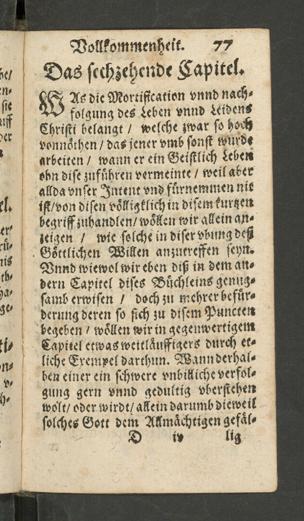 Vollkommenheit. 77
Das sechzehende Capitel.
WAs die Mortification vnnd nach-
folgung des Leben vnnd Leidens
Christi belangt / welche zwar so hoch
vonnöthen / das jener vmb sonst wurde
arbeiten / wann er ein Geistlich Leben
ohn dise zuführen vermeinte / weil aber
allda vnser Intent vnd fürnemmen nit
ist / von disen völligklich in disem kurtzen
begriff zuhandlen / wöllen wir allein an-
zeigen / wie solche in diser vbung deß
Göttlichen Willen anzutreffen seyn.
Vnnd wiewol wir eben diß in dem an-
dern Capitel dises Büchleins genug-
samb erwisen / doch zu mehrer befür-
derung deren so sich zu disem Puncten
begeben / wöllen wir in gegenwertigem
Capitel etwas weitläuffigers durch et-
liche Exempel darthun. Wann derhal-
ben einer ein schwere vnbilliche verfol-
gung gern vnnd gedultig vberstehen
wolt / oder wirdt / allein darumb dieweil
solches Gott dem Allmächtigen gefäl-
D iv lig